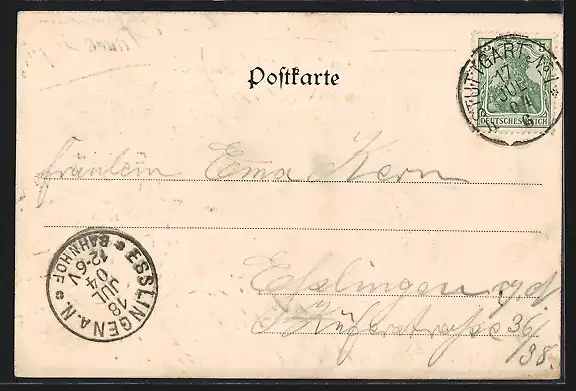 Postkarte
STUTTGART
17
JUL
04
DEUTSCHES REICH
Fräulein Emma Kern
ESSLINGEN A.N.
BAHNHOF
12-6V
18
JUL
04
Esslingen a/N
Küferstrasse 36/